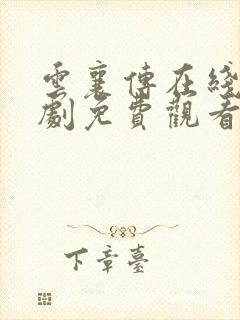 雲襄傳在綫
劇免費觀看
下章臺